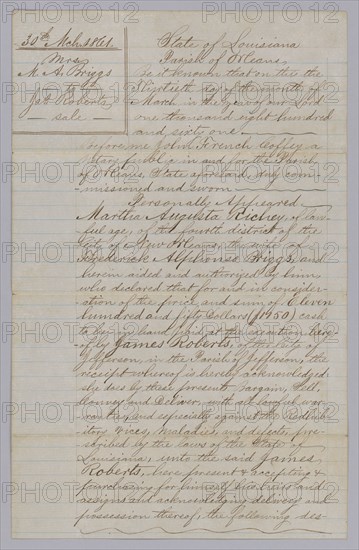 30th Mch. 1861.
Mrs.
M. A. Briggs
to
Jas. Roberts
— sale —
State of Louisiana
Parish of Orleans,
Be it known that on this the
Thirtieth day of the month of
March in the year of our Lord
one thousand eight hundred
and sixty one
before me John French Coffey a
Notary public in and for the Parish
of Orleans, State aforesaid, duly com-
missioned and sworn
Personally Appeared
Martha Augusta Richey, of law-
ful age, of the fourth district of the
City of New Orleans, the wife of
Frederick Alphonso Briggs, and
herein aided and authorized by him,
who declared that for and in consider-
ation of the price and sum of Eleven
hundred and fifty Dollars ($1150) cash
to her in hand paid at the execution here-
of by James Roberts, of the City of
Jefferson, in the Parish of Jefferson, the
receipt whereof is hereby acknowledged
she does by these present bargain, Sell,
Convey and Deliver, with all lawful war-
ranty, and especially against the Redhib-
itory vices, maladies and defects pre-
scribed by the laws of the State of
Louisiana, unto the said James
Roberts, here present & accepting &
purchasing for himself his heirs and
assigns and acknowledging delivery and
possession thereof, the following des-